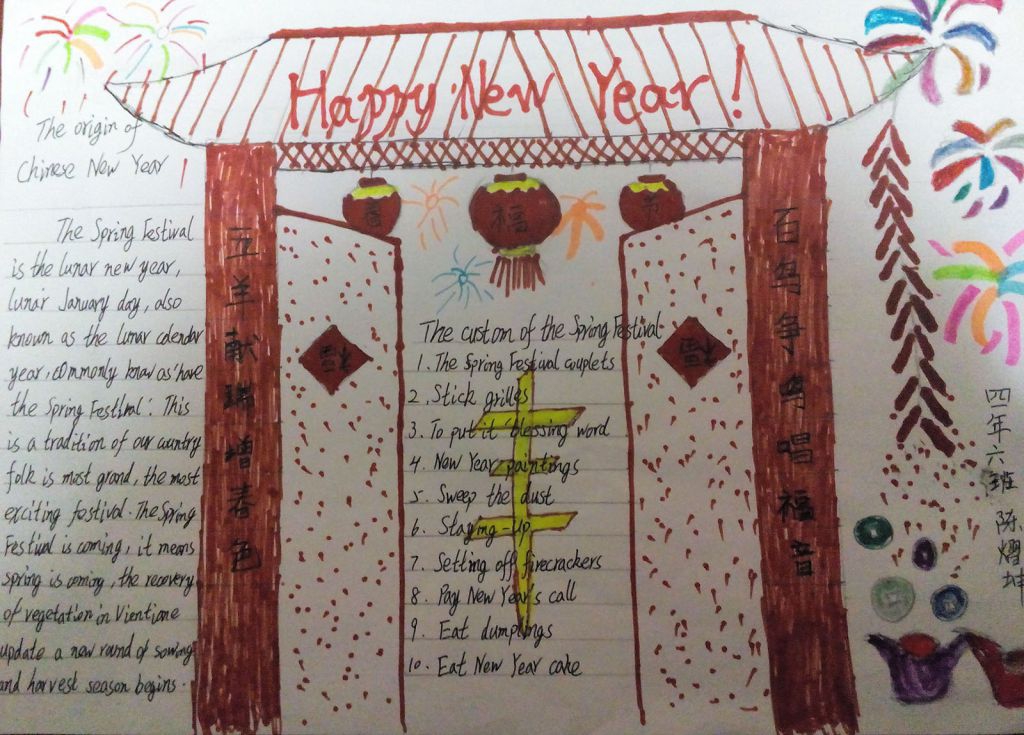 Happy New Year !
The origin of
Chinese New Year !
The Spring Festival
is the lunar new year,
lunar January day, also
known as the lunar calendar
year, commonly know as "have
the Spring Festival". This
is a tradition of our country
folk is most grand, the most
exciting festival. The Spring
Festival is coming, it means
spring is coming, the recovery
of vegetation in Vientiane
update a new round of sowing
and harvest season begins.
五羊献瑞增春色
春 福 节
福
The custom of the Spring Festival
1. The Spring Festival couplets
2. Stick grilles
3. To put it "blessing word
4. New Year paintings
5. Sweep the dust
6. Staying-up
7. Setting off firecrackers
8. Pay New Year's call
9. Eat dumplings
10. Eat New Year cake
福
百鸟争鸣唱福音
四年六班 陈熠坤